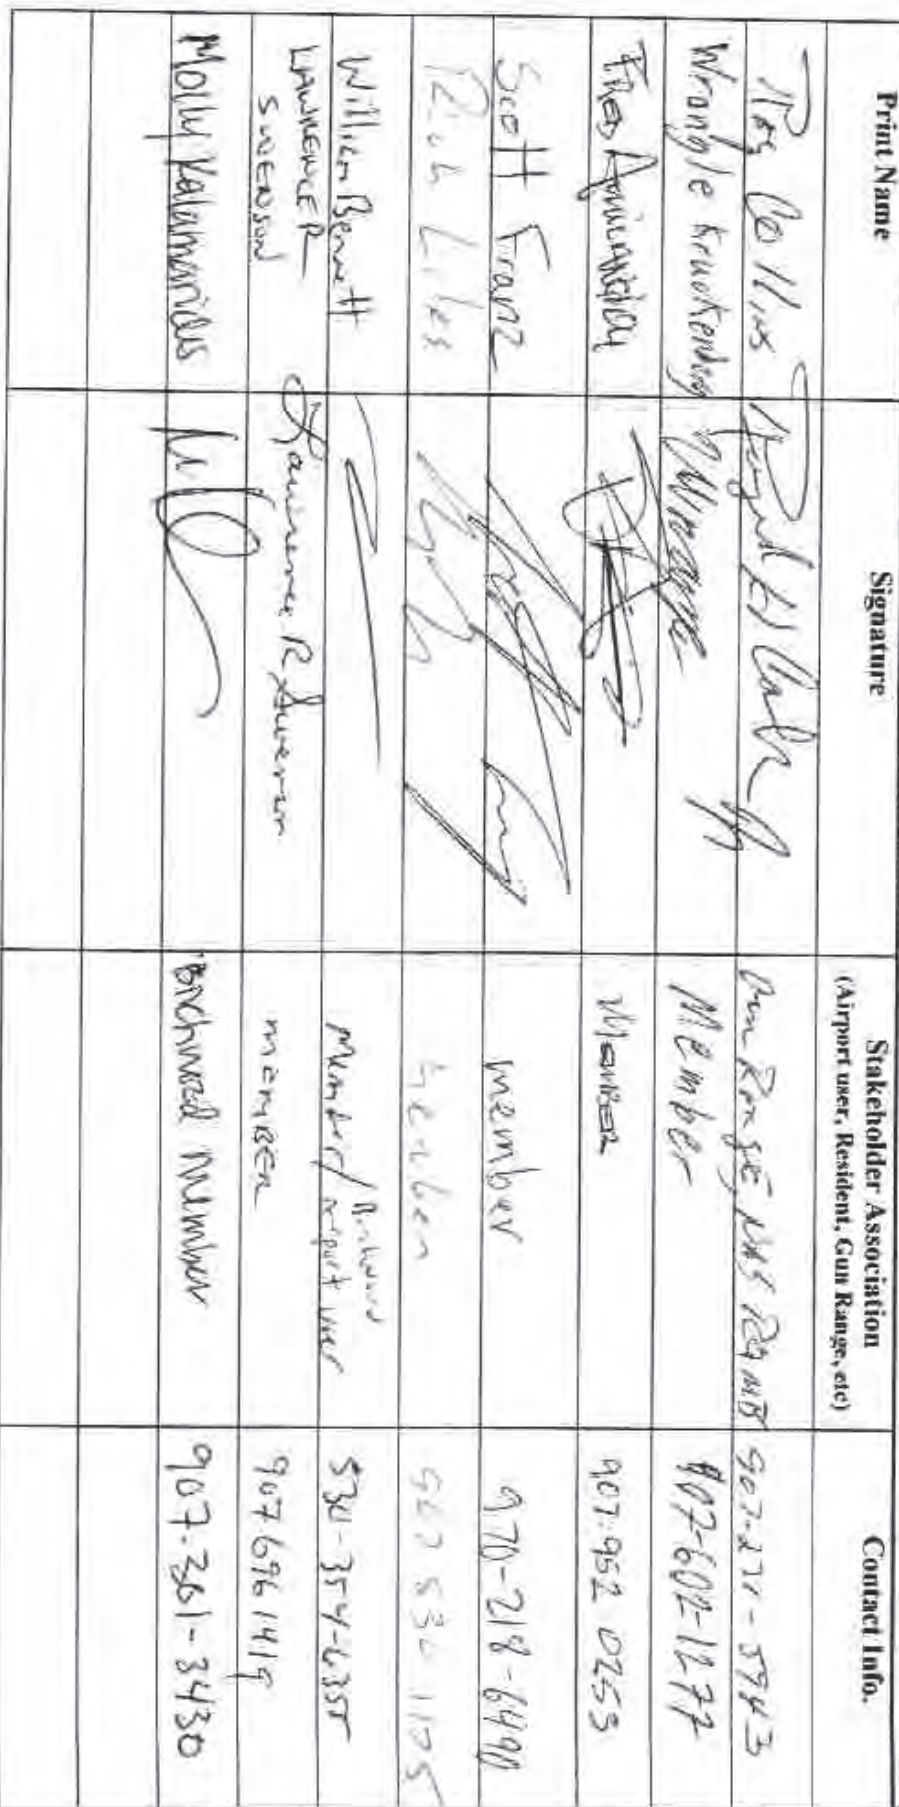 Print Name Signature Stakeholder Association Contact Info.
(Airport user, Resident, Gun Range, etc)
Collins Gun Range, 907-271-5943
Wrangle Member 907-602-1277
Member 907-952 0253
Scott Franz member 970-218-6490
Rich Liles Member
William Bennett Member/Birchwood airport user 530-354-6355
LAWRENCE R SWENSON Lawrence R Swenson MEMBER 907 696 1419
Molly Kalamarides Birchwood Member 907-301-3430